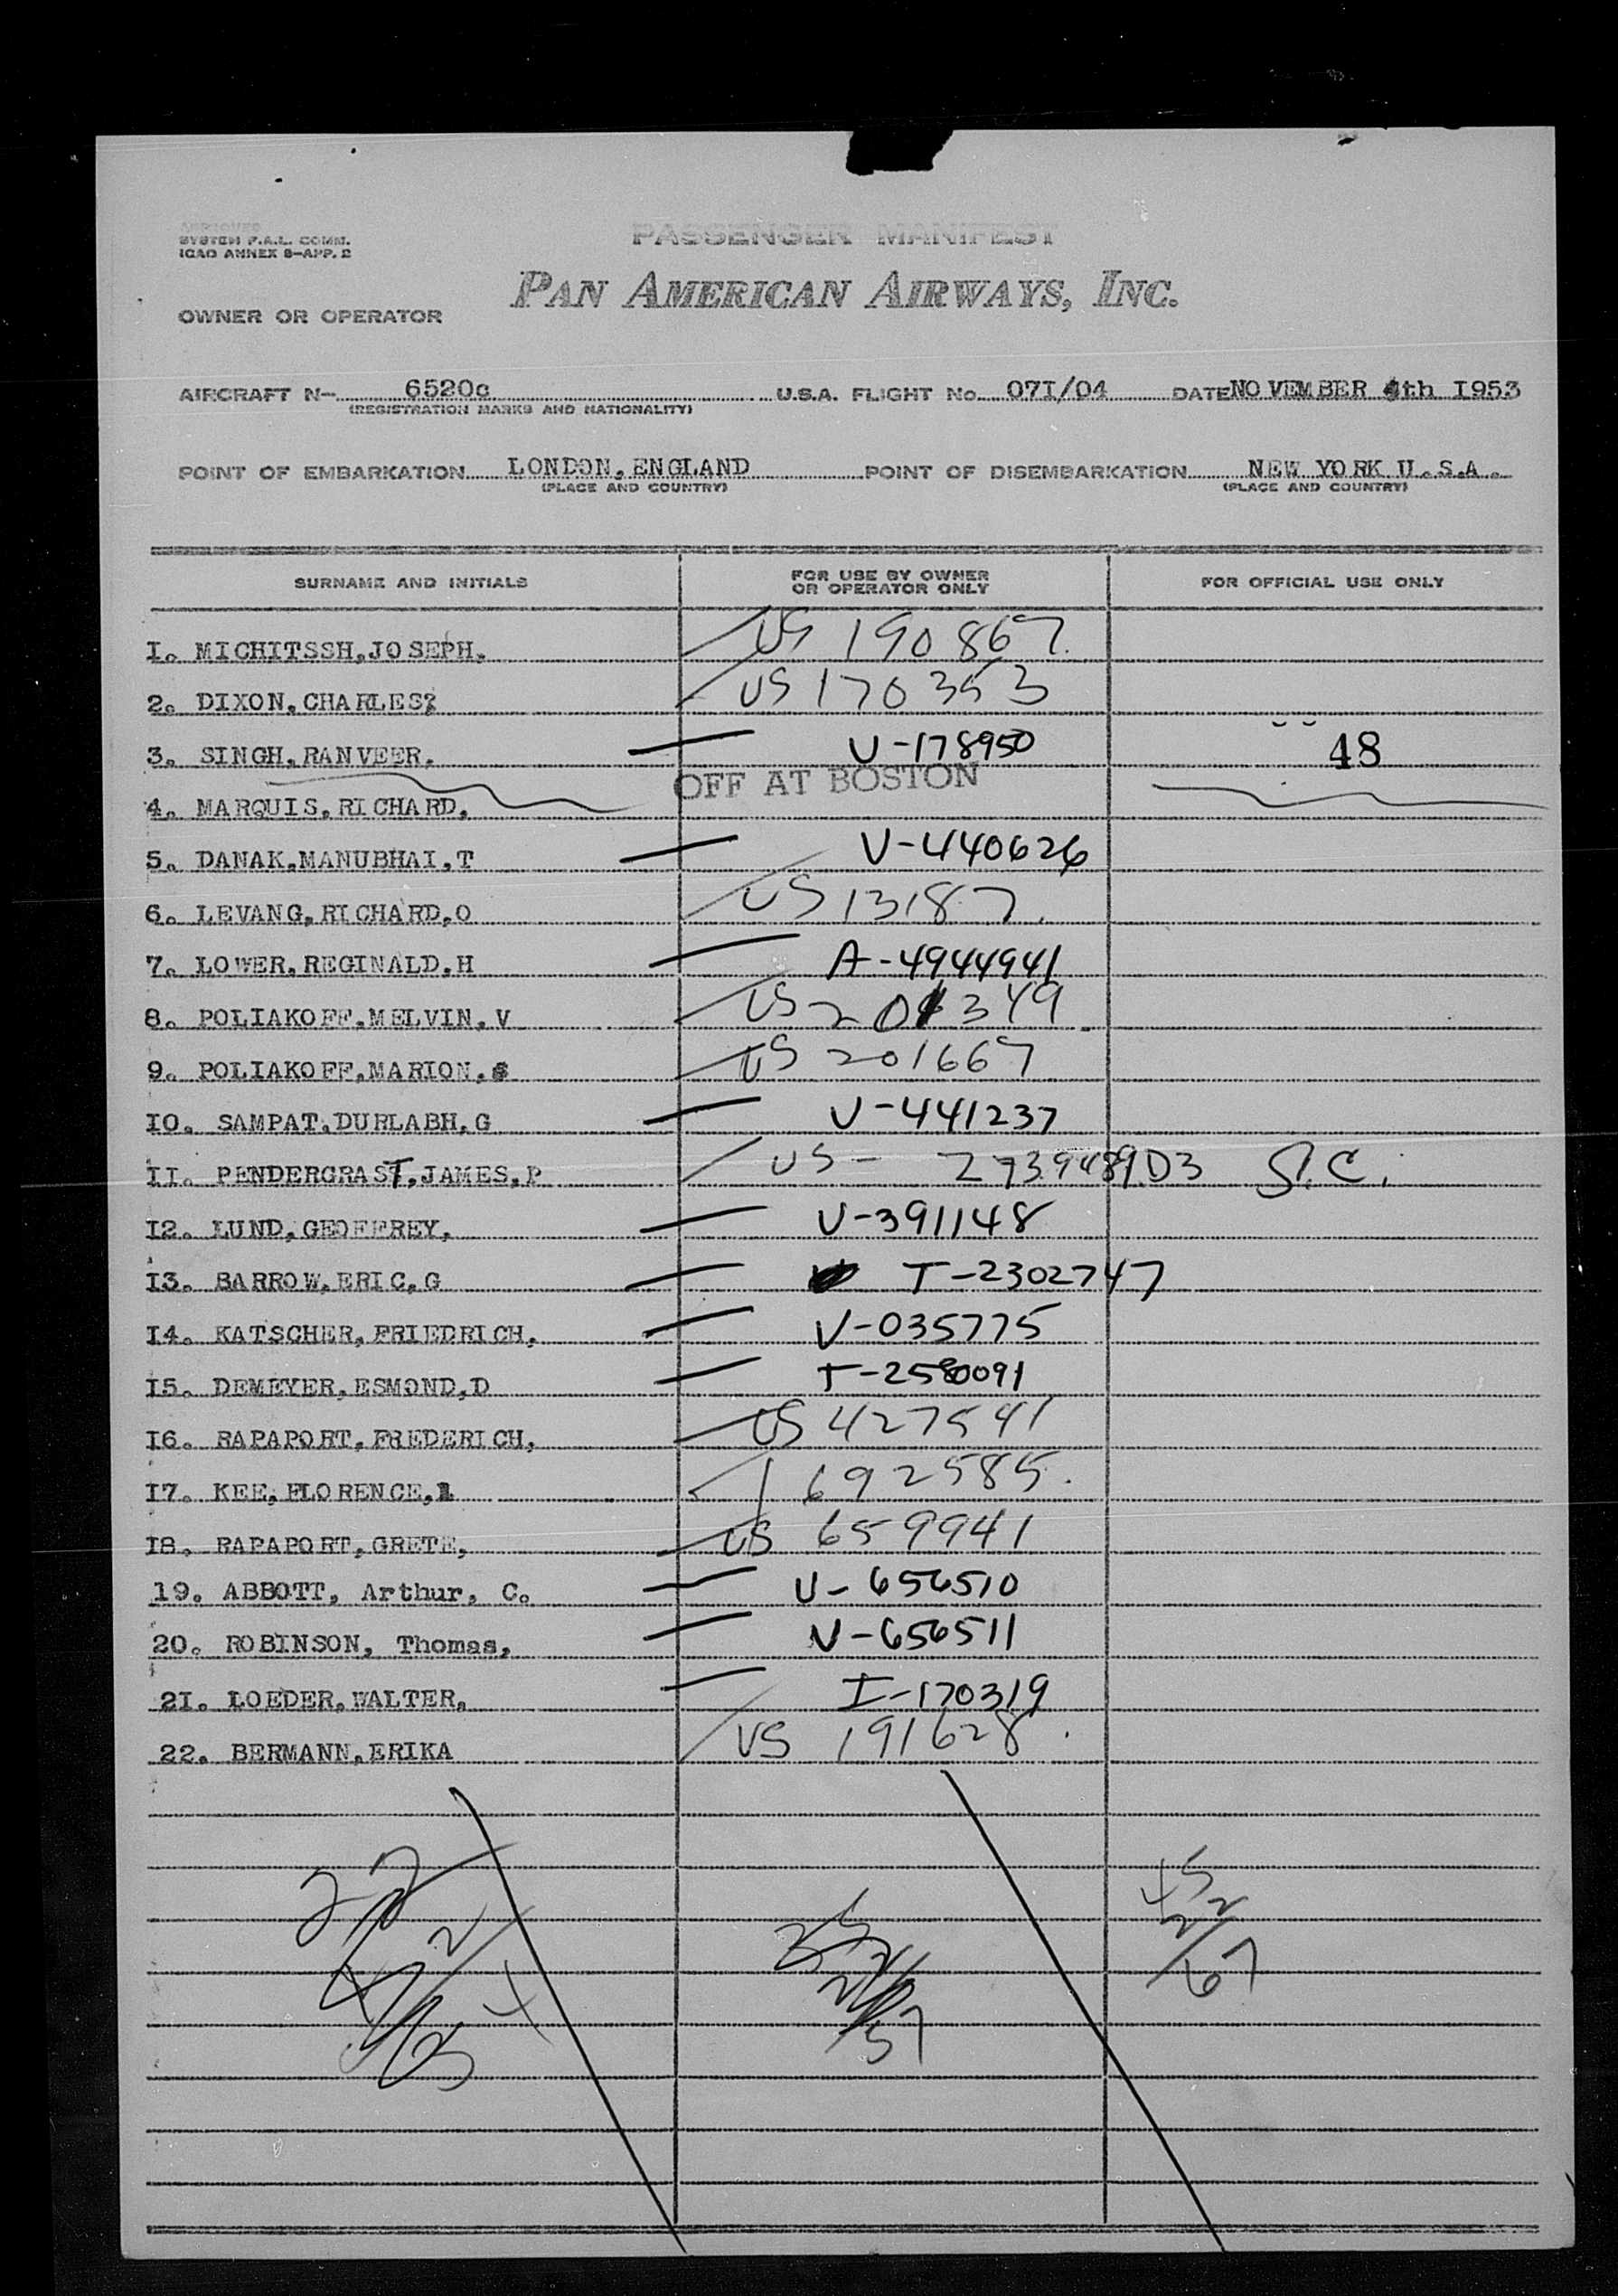 APPROVED
SYSTEM F.A.L. COMM.
ICAO ANNEX 9-APP. 2
PASSENGER MANIFEST
PAN AMERICAN AIRWAYS, INC.
OWNER OR OPERATOR
AIRCRAFT N- 6520c U.S.A. FLIGHT No. 07I/04 DATE NOVEMBER 4th I953
(REGISTRATION MARKS AND NATIONALITY)
POINT OF EMBARKATION LONDON,ENGLAND POINT OF DISEMBARKATION NEW YORK U.S.A.
(PLACE AND COUNTRY) (PLACE AND COUNTRY)
SURNAME AND INITIALS FOR USE BY OWNER OR OPERATOR ONLY FOR OFFICIAL USE ONLY
I. MICHITSSH,JOSEPH. US 190867.
2. DIXON,CHARLES US 170353
3. SINGH,RANVEER. V-178950 48
OFF AT BOSTON
4. MARQUIS,RICHARD.
5. DANAK,MANUBHAI,T V-440626
6. LEVANG,RICHARD,O US 13187.
7. LOWER,REGINALD,H A-4944941
8. POLIAKOFF,MELVIN,V US 201349
9. POLIAKOFF,MARION,S US 201667
IO. SAMPAT,DURLABH,G V-441237
II. PENDERGRAST,JAMES,P US- 27394891D3 S.C.
I2. LUND,GEOFFREY, V-391148
I3. BARROW,ERIC,G T-2302747
I4. KATSCHER,FRIEDRICH, V-035775
I5. DEMEYER,ESMOND,D T-2580091
I6. RAPAPORT,FREDERICH, US 427541
I7. KEE,FLORENCE,L 692585.
I8. RAPAPORT,GRETE, US 659941
19. ABBOTT, Arthur, C. V-656510
20. ROBINSON, Thomas, V-656511
2I. LOEDER,WALTER, I-170319
22. BERMANN,ERIKA US 191628.
22
45
22
67
57